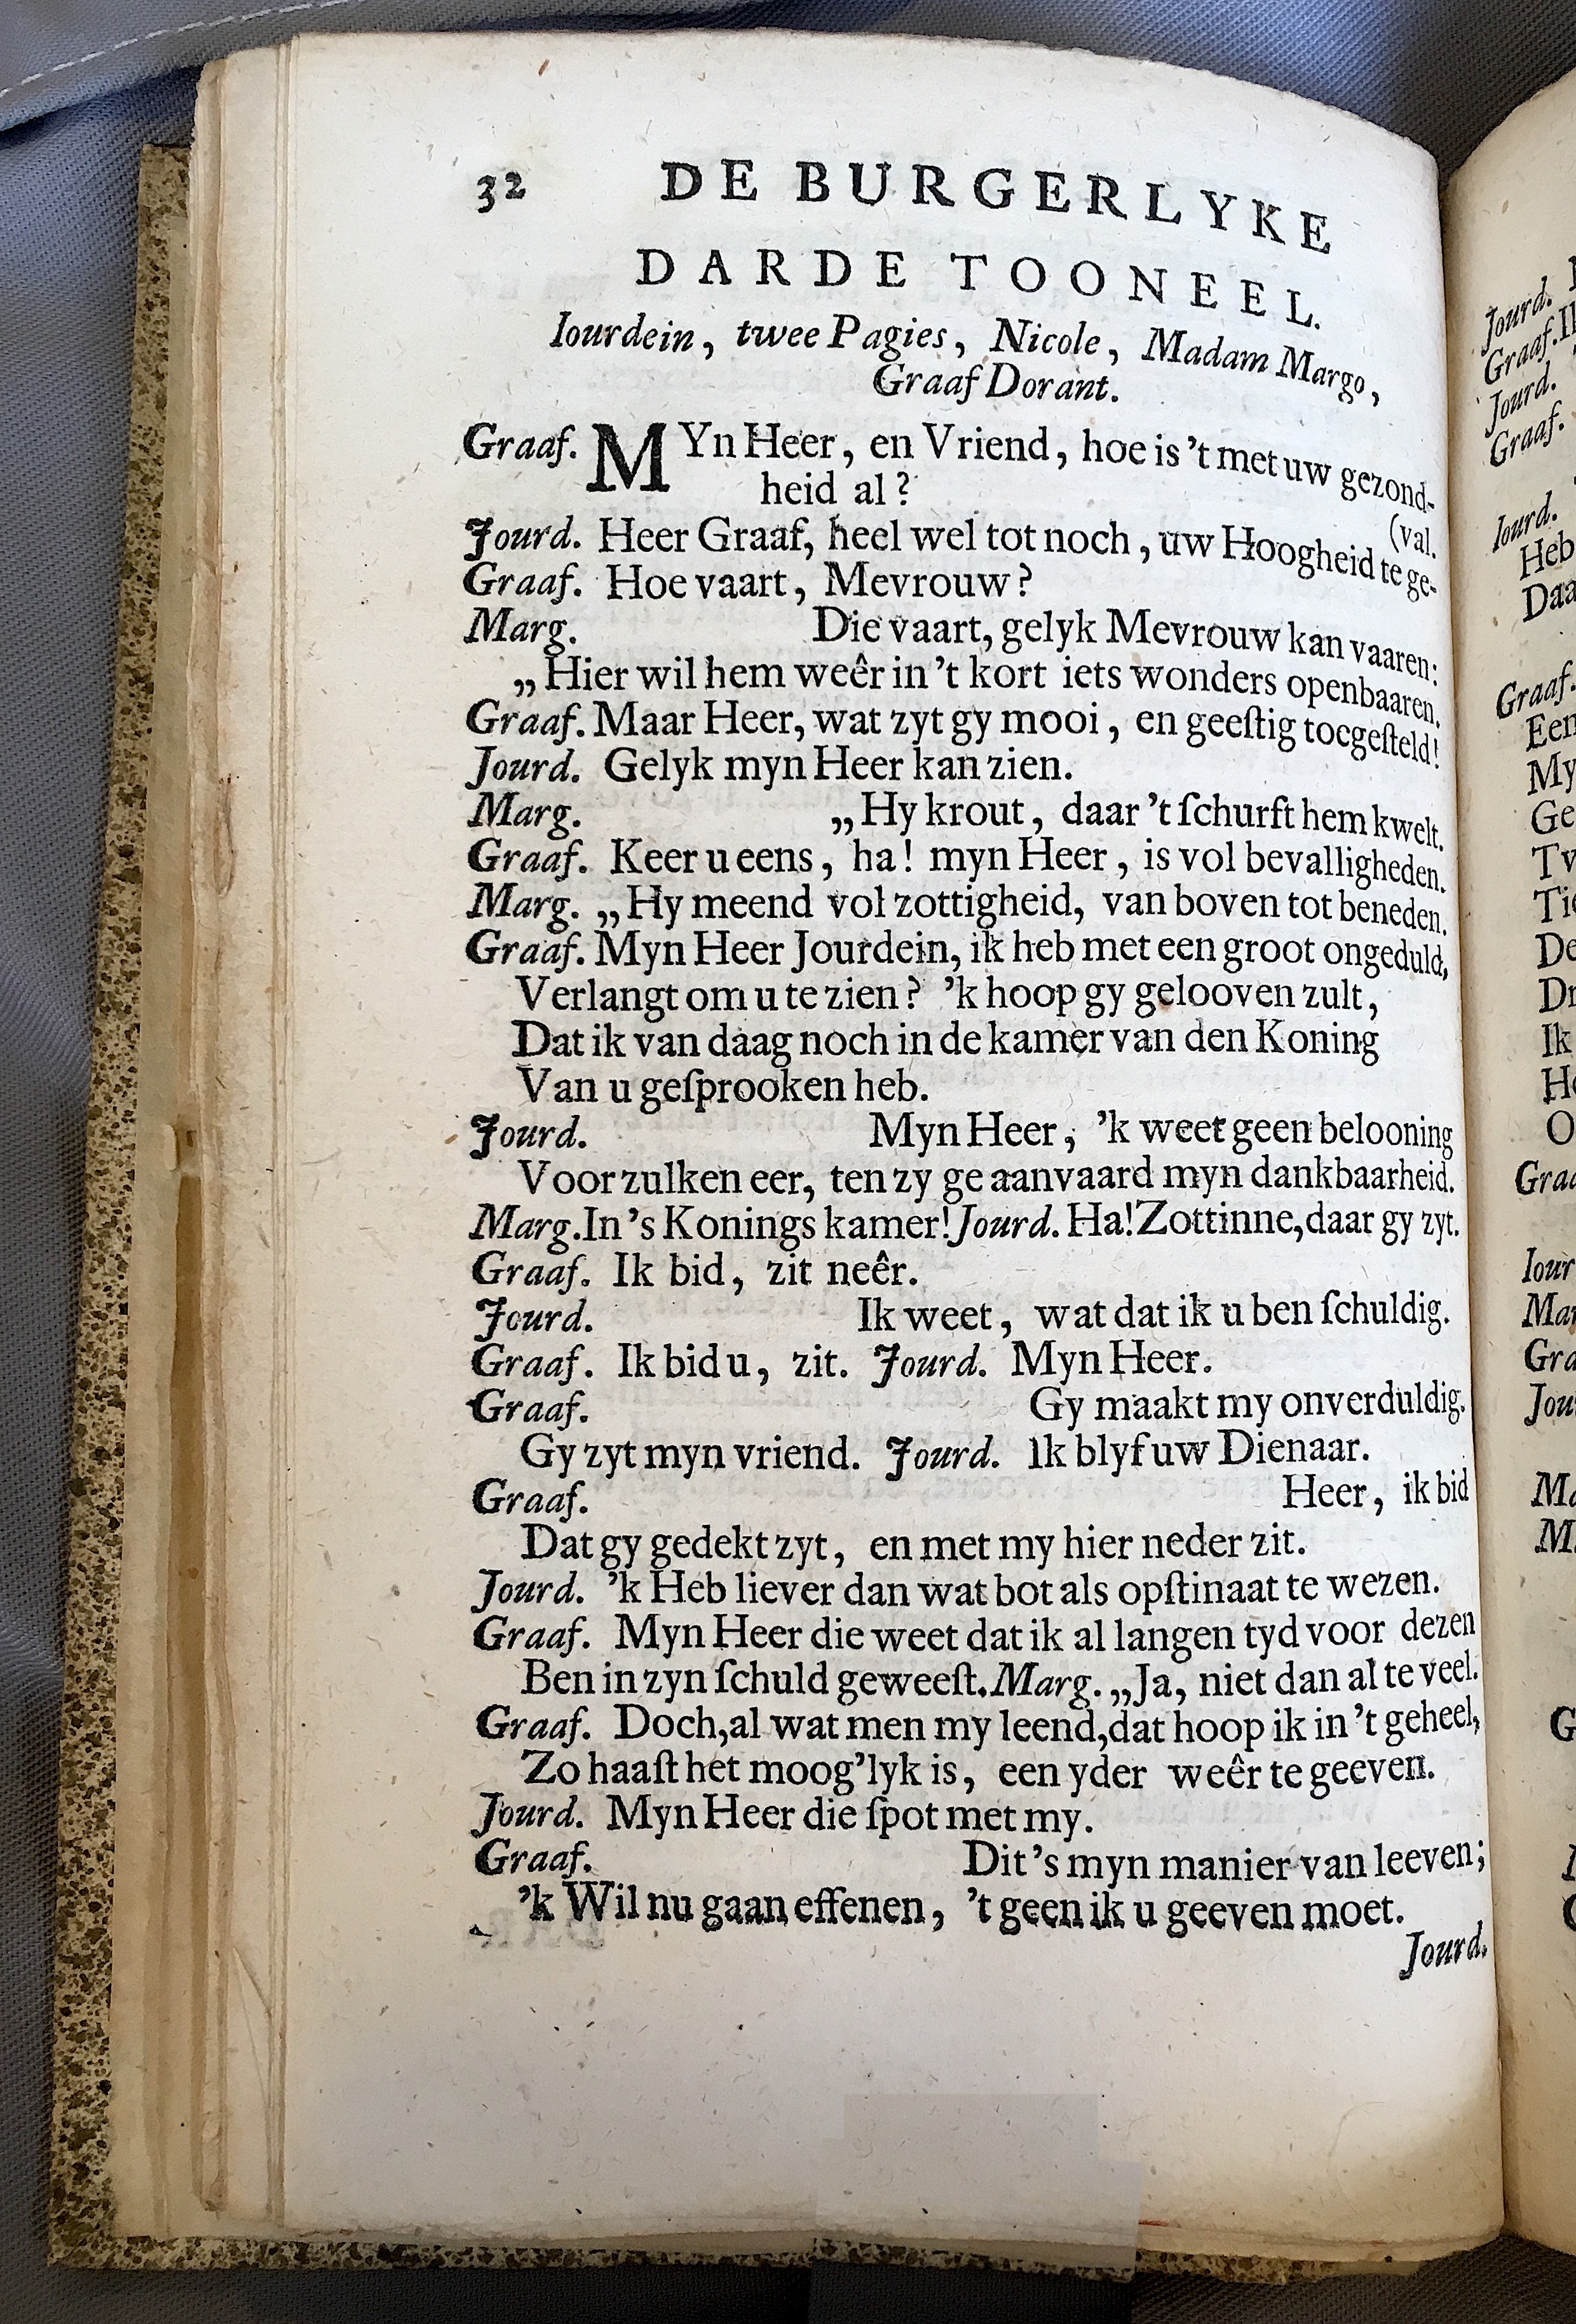 32 DE BURGERLYKE
DARDE TOONEEL.
Iourdein, twee Pagies, Nicole, Madam Margo,
Graaf Dorant.
Graaf. MYn Heer, en Vriend, hoe is 't met uw gezond-
heid al?
(val.
Jourd. Heer Graaf, heel wel tot noch, uw Hoogheid te ge-
Graaf. Hoe vaart, Mevrouw?
Marg. Die vaart, gelyk Mevrouw kan vaaren:
„Hier wil hem weêr in 't kort iets wonders openbaaren.
Graaf. Maar Heer, wat zyt gy mooi, en geeſtig toegeſteld!
Jourd. Gelyk myn Heer kan zien.
Marg. „Hy krout, daar 't ſchurft hem kwelt.
Graaf. Keer u eens, ha! myn Heer, is vol bevalligheden.
Marg. „Hy meend vol zottigheid, van boven tot beneden.
Graaf. Myn Heer Jourdein, ik heb met een groot ongeduld,
Verlangt om u te zien? 'k hoop gy gelooven zult,
Dat ik van daag noch in de kamer van den Koning
Van u geſprooken heb.
Jourd. Myn Heer, 'k weet geen belooning
Voor zulken eer, ten zy ge aanvaard myn dankbaarheid.
Marg. In 's Konings kamer! Jourd. Ha! Zottinne, daar gy zyt.
Graaf. Ik bid, zit neêr.
Jourd. Ik weet, wat dat ik u ben ſchuldig.
Graaf. Ik bid u, zit. Jourd. Myn Heer.
Graaf. Gy maakt my onverduldig.
Gy zyt myn vriend. Jourd. Ik blyf uw Dienaar.
Graaf. Heer, ik bid
Dat gy gedekt zyt, en met my hier neder zit.
Jourd. 'k Heb liever dan wat bot als opſtinaat te wezen.
Graaf. Myn Heer die weet dat ik al langen tyd voor dezen
Ben in zyn ſchuld geweeſt. Marg. „Ja, niet dan al te veel.
Graaf. Doch, al wat men my leend, dat hoop ik in 't geheel,
Zo haaſt het moog'lyk is, een yder weêr te geeven.
Jourd. Myn Heer die ſpot met my.
Graaf. Dit 's myn manier van leeven;
'k Wil nu gaan effenen, 't geen ik u geeven moet.
Jourd.
Jourd.
Graaf. Il
Jourd.
Graaf.
Iourd.
Heb
Daa
Graaf.
Een
My
Ge
Tv
Tie
De
Dr
Ik
He
O
Graa
Iour
Mar
Gra
Jou
Ma
M.
G